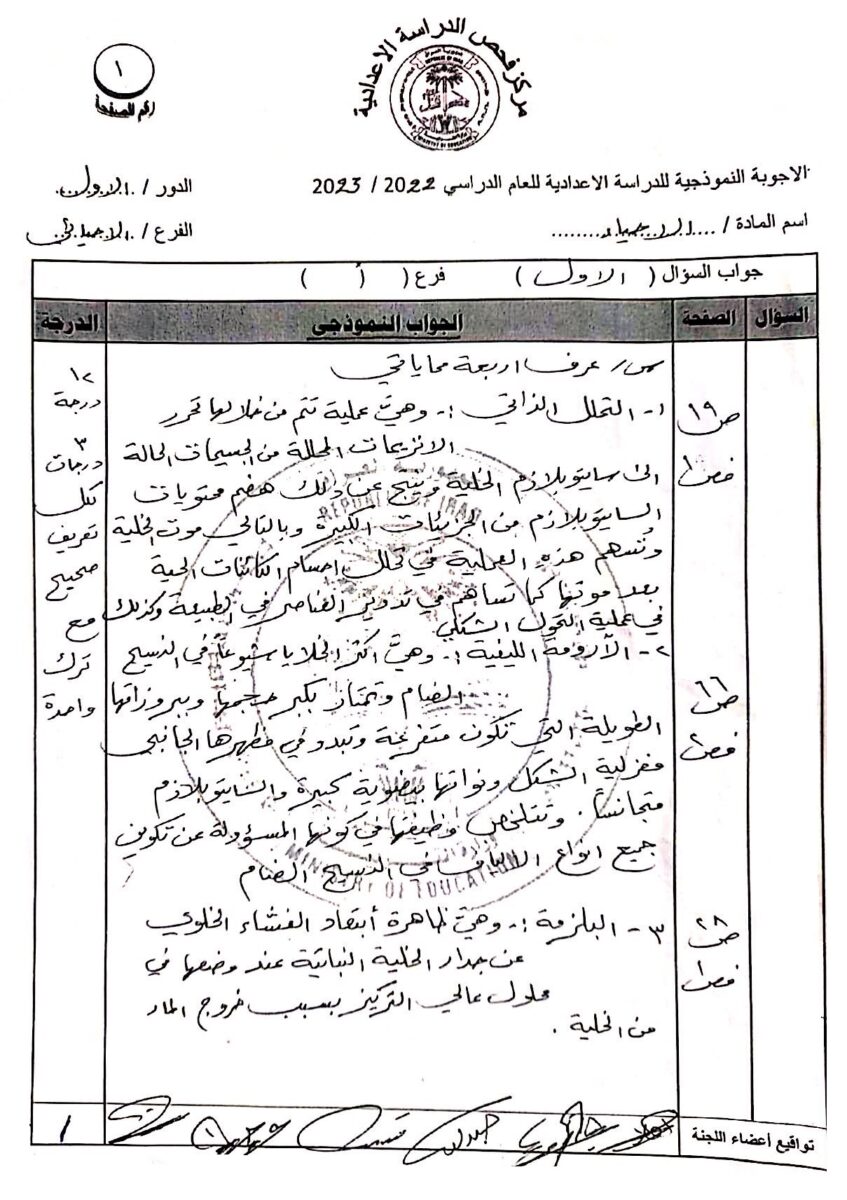 مركز فحص الدراسة الاعدادية
١
رقم الصفحة
الاجوبة النموذجية للدراسة الاعدادية للعام الدراسي 2022 / 2023
الدور / الاول
اسم المادة / .... الاحياء ........
الفرع / الاحيائي
جواب السؤال ( الاول ) فرع ( أ )
السؤال الصفحة الجواب النموذجي الدرجة
س/ عرف اربعة مما يأتي
١٢ درجة
ص ١٩
فصل ١
١- التحلل الذاتي :- وهي عملية تتم من خلالها تحرر
الانزيمات المحللة من الجسيمات الحالة
الى سايتوبلازم الخلية وينتج عن ذلك هضم محتويات
السايتوبلازم من الجزيئات الكبيرة وبالتالي موت الخلية
وتسهم هذه العملية في تحلل اجسام الكائنات الحية
بعد موتها كما تساهم في تدوير العناصر في الطبيعة وكذلك
في عملية التحول الشكلي
٣ درجات
لكل
تعريف
صحيح
مع
ترك
واحدة
ص ٦٦
فصل ٢
٢- الأرومة الليفية :- وهي اكثر الخلايا شيوعاً في النسيج
الضام وتمتاز بكبر حجمها وببروزاتها
الطويلة التي تكون متفرعة وتبدو في مظهرها الجانبي
مغزلية الشكل ونواتها بيضوية كبيرة والسايتوبلازم
متجانساً . وتتلخص وظيفتها في كونها المسؤولة عن تكوين
جميع انواع الالياف في النسيج الضام
ص ٢٨
فصل ١
٣- البلزمة :- وهي ظاهرة أبتعاد الغشاء الخلوي
عن جدار الخلية النباتية عند وضعها في
محلول عالي التركيز بسبب خروج الماء
من الخلية .
تواقيع أعضاء اللجنة
١
REPUBLIC OF IRAQ
MINISTRY OF EDUCATION